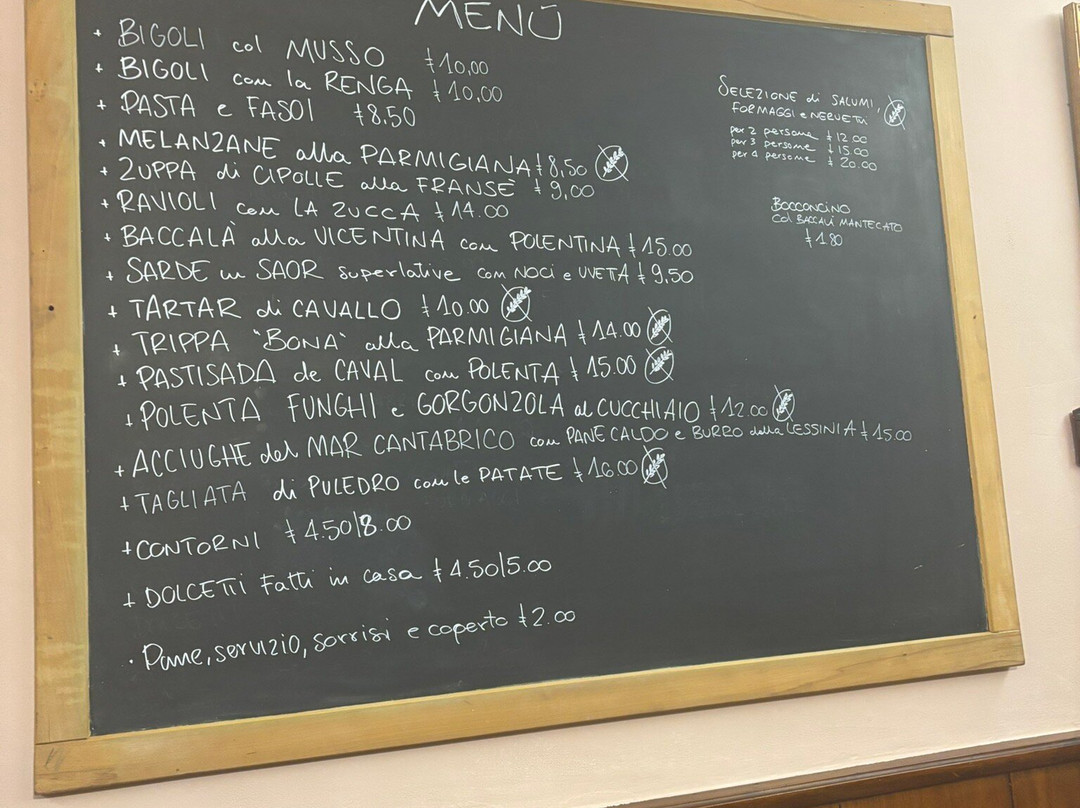 MENÙ
+ BIGOLI col MUSSO ł 10,00
+ BIGOLI con la RENGA ł 10,00
+ PASTA e FASOI ł 8,50
+ MELANZANE alla PARMIGIANA ł 8,50
+ ZUPPA di CIPOLLE alla FRANSE ł 9,00
+ RAVIOLI con LA ZUCCA ł 14.00
+ BACCALÀ alla VICENTINA con POLENTINA ł 15.00
+ SARDE in SAOR superlative con NOCI e UVETTA ł 9,50
+ TARTAR di CAVALLO ł 10.00
+ TRIPPA "BONA" alla PARMIGIANA ł 14.00
+ PASTISADA de CAVAL con POLENTA ł 15.00
+ POLENTA FUNGHI e GORGONZOLA al CUCCHIAIO ł 12.00
+ ACCIUGHE del MAR CANTABRICO con PANE CALDO e BURRO della LESSINIA ł 15.00
+ TAGLIATA di PULEDRO con le PATATE ł 16.00
+ CONTORNI ł 4.50/8.00
+ DOLCETTI Fatti in casa ł 4.50/5.00
· Pane, servizio, sorrisi e coperto ł 2.00
SELEZIONE di SALUMI,
FORMAGGI e NERVETTI
per 2 persone ł 12.00
per 3 persone ł 15.00
per 4 persone ł 20.00
BOCCONCINO
Col BACCALÀ MANTECATO
ł 1.80